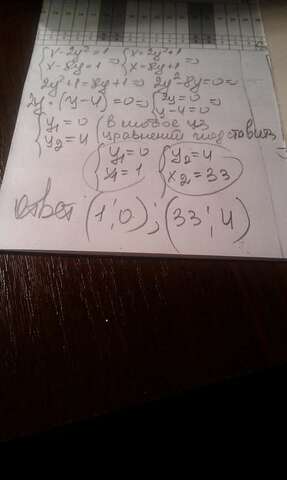 {x-2y²=1 {x=2y²+1
{x-8y=1 => {x=8y+1 =>
2y²+1=8y+1 => 2y²-8y=0 =>
2y·(y-4)=0 => {2y=0 =>
{y-4=0
{y₁=0 (в любое из
{y₂=4 уравнений подставиз
{y₁=0 {y₂=4
{x₁=1 {x₂=33
ответ: (1;0); (33;4)